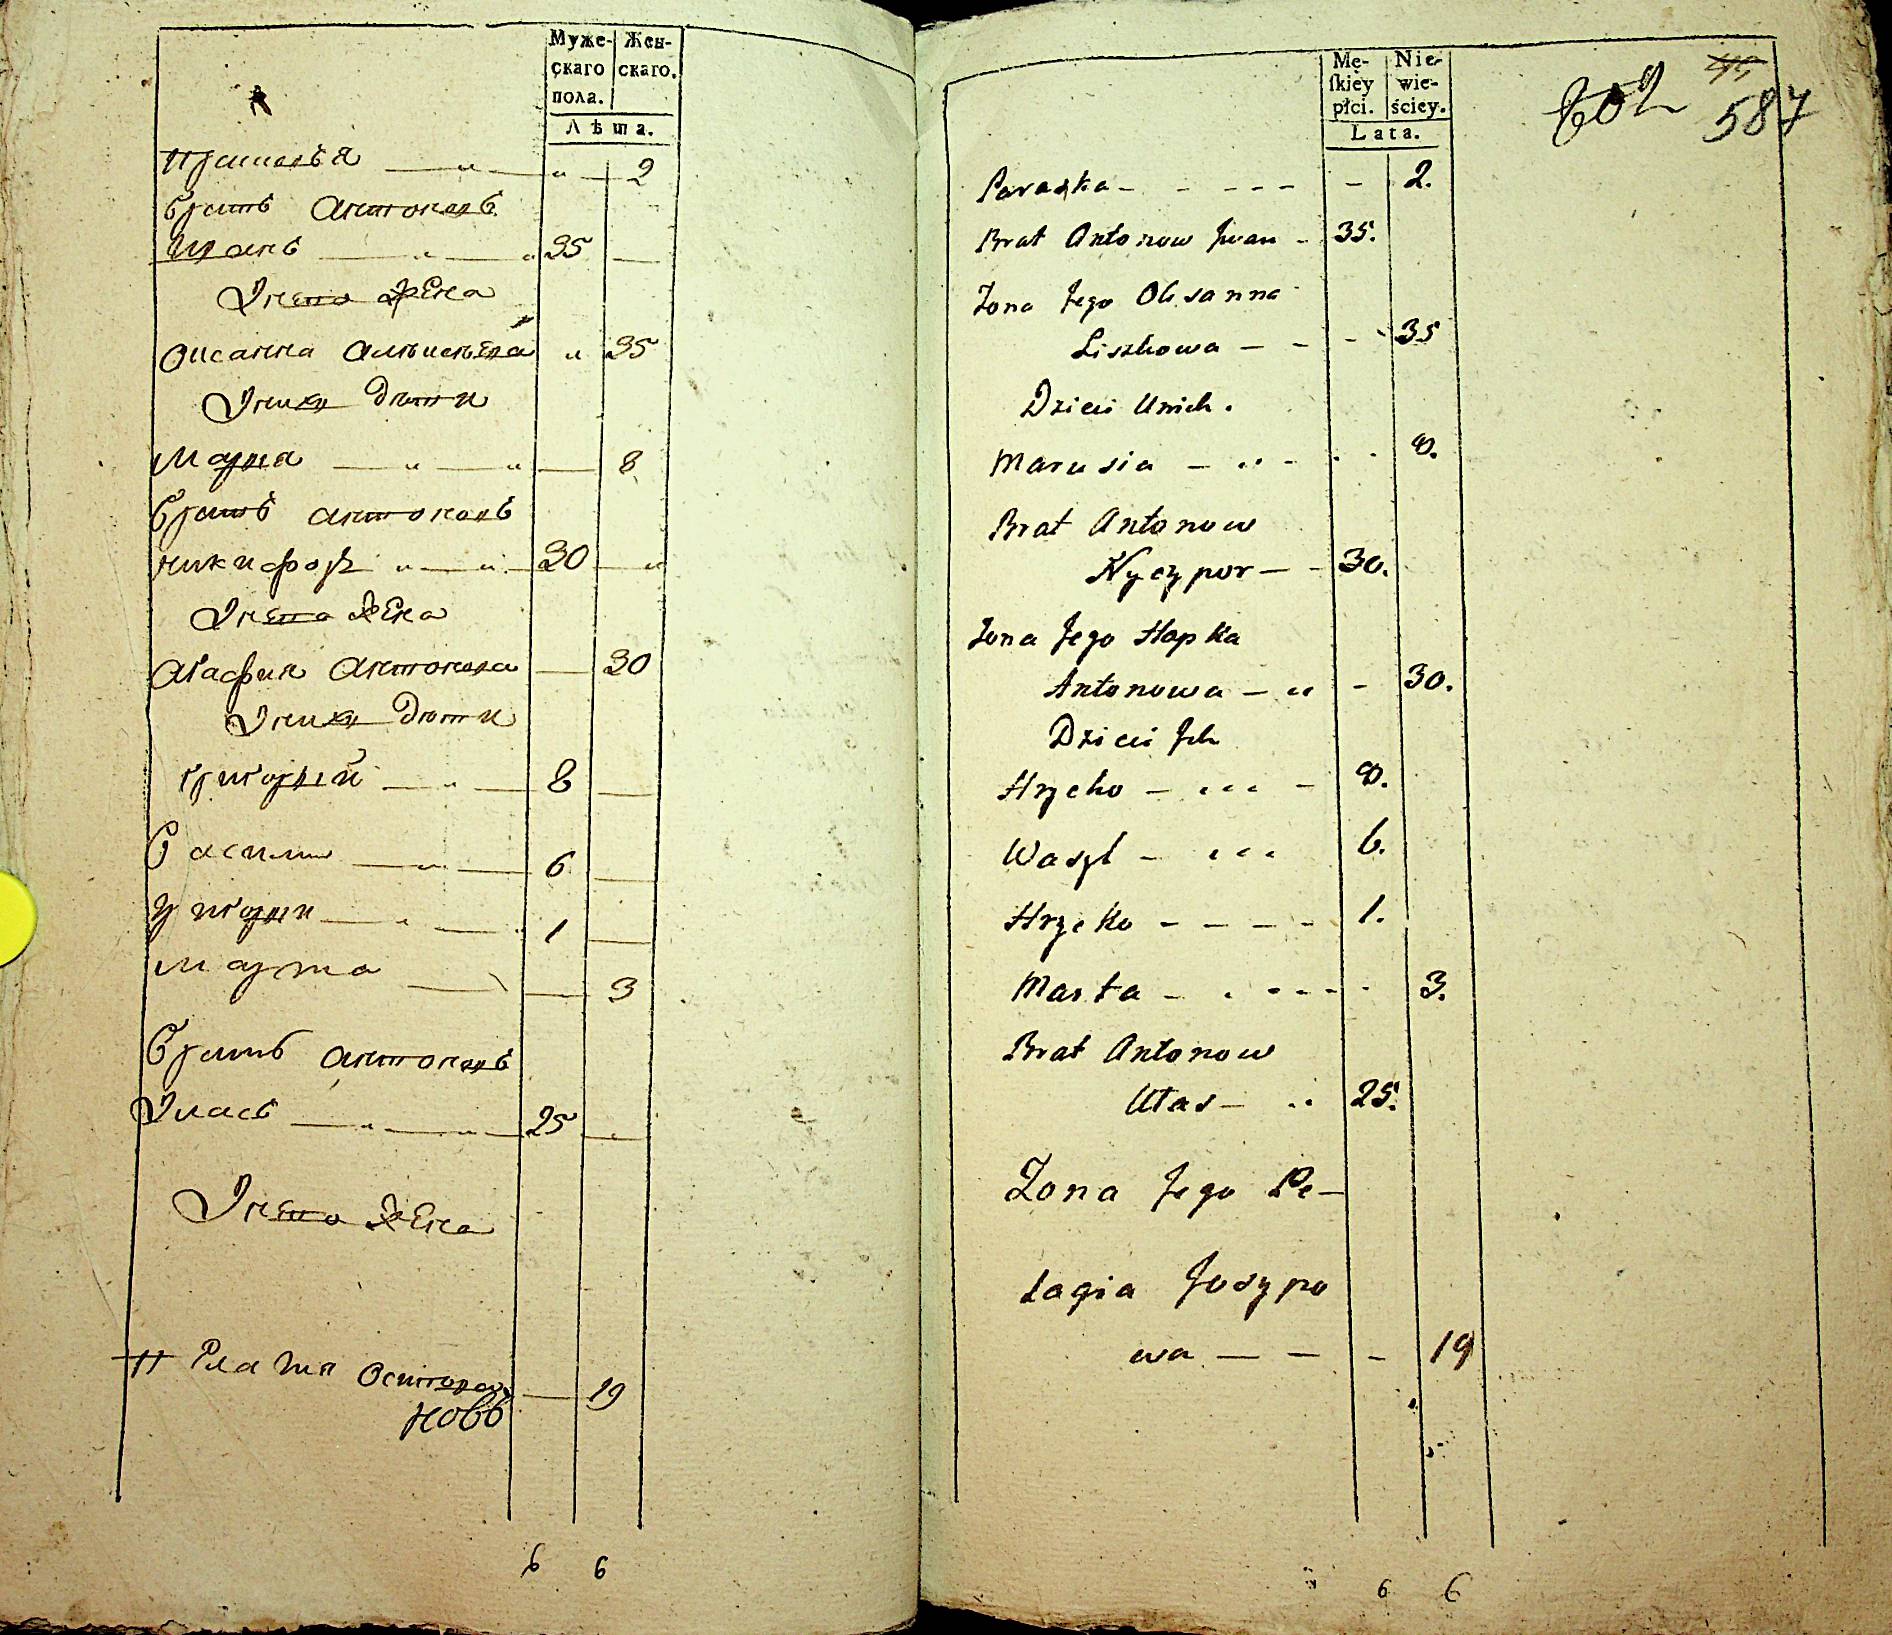 Муже-
скаго
пола.
Жен-
скаго.
Лѣта.
Прасковья 2
братъ Антоновъ
Иванъ 35
Ѵнего Жена
Оксанна 35
Ѵнихъ дѣти
Марья 8
братъ Антоновъ
никифоръ 30
Ѵнего Жена
Агафия Антонова 30
Ѵнихъ дѣти
Григорій 8
Василь 6
Григорий 1
Марта 3
братъ Антоновъ
Ѵласъ 25
Ѵнего Жена
Пелагия 19
6 6
Mę-
ſkiey
płci.
Nie-
wie-
ściey.
Lata.
602
587
Paraska 2.
Brat Antonow Jwan 35.
Zona Jego Oksanna
Liszkowa 35
Dzieci Unich.
Marusia 8.
Brat Antonow
Nyczypor 30.
Zona Jego Hapka
Antonowa 30.
Dzieci Jch
Hrycko 8.
Wasyl 6.
Hrycko 1.
Marta 3.
Brat Antonow
Ułas 25.
Zona Jego Pe-
łagia Josypo
wa 19
6 6